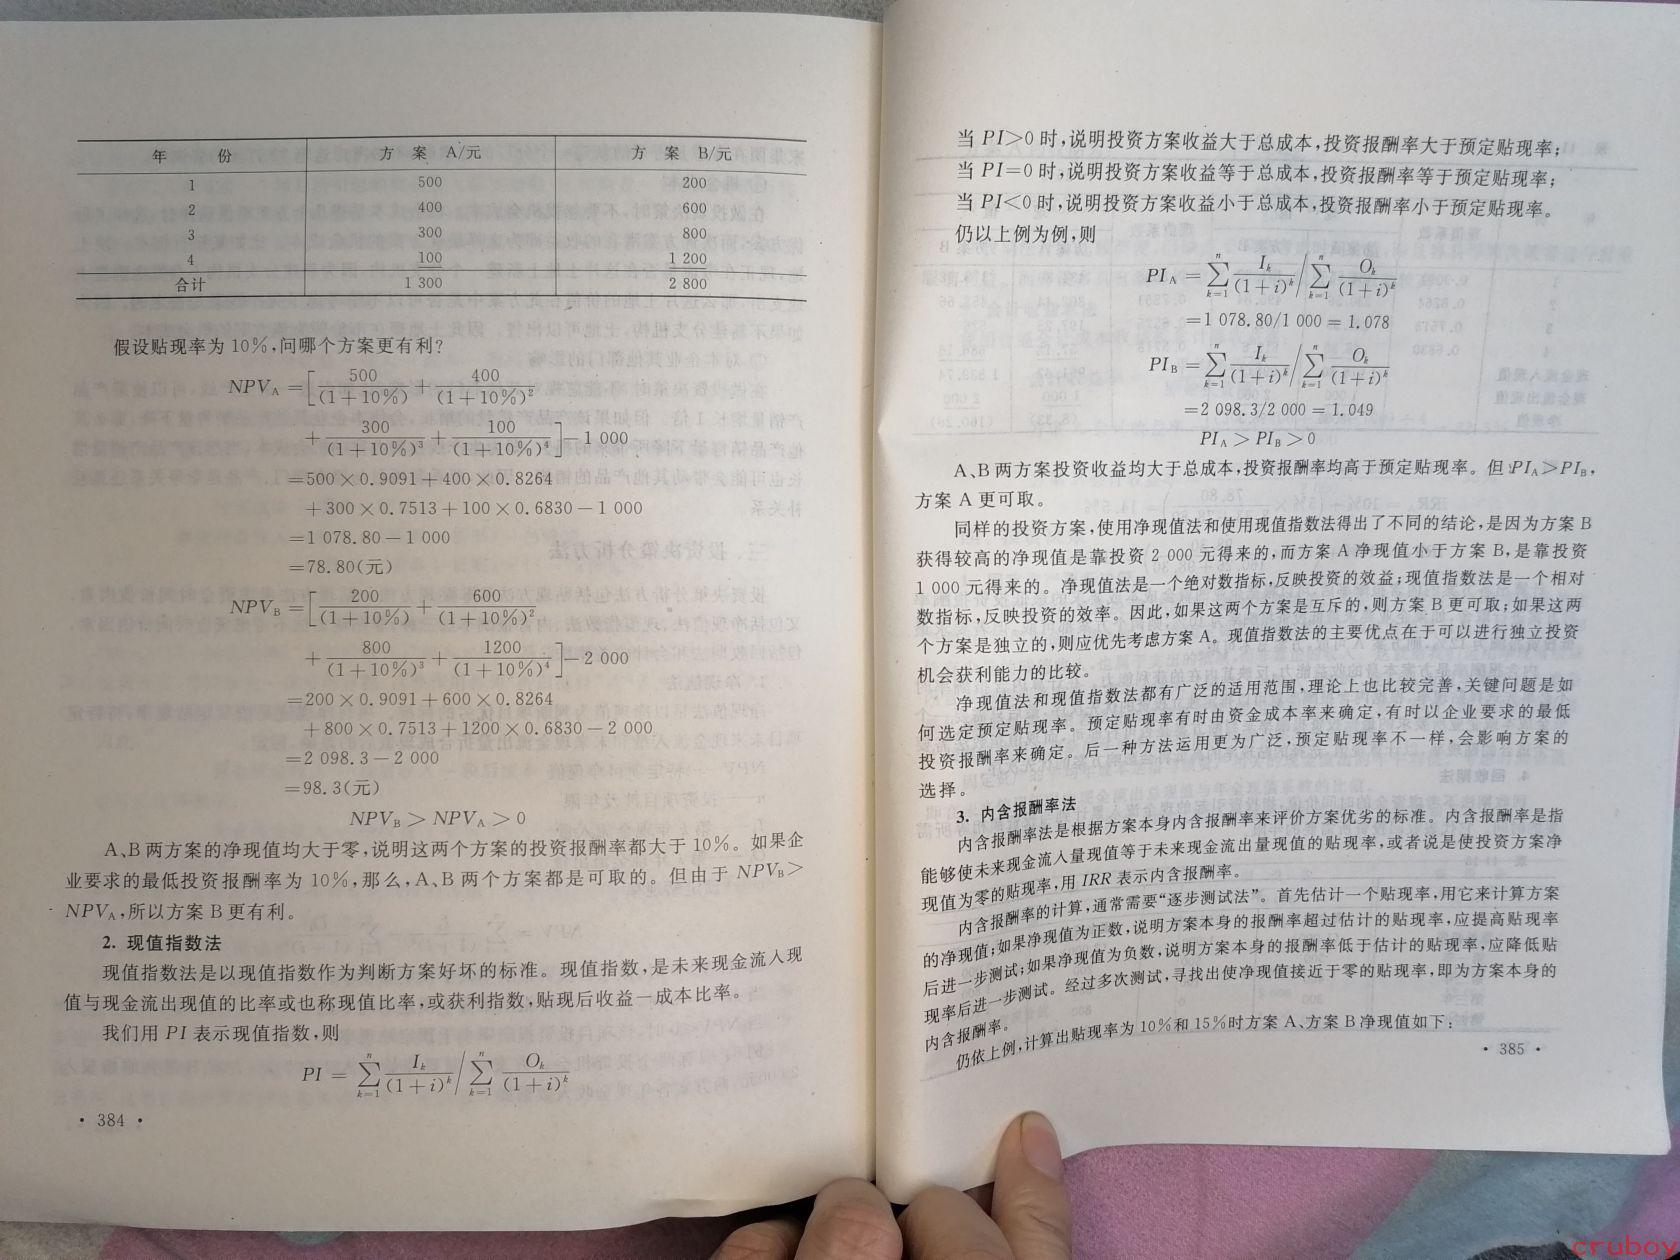 年 份 方 案 A/元 方 案 B/元
1 500 200
2 400 600
3 300 800
4 100 1 200
合计 1 300 2 800
假设贴现率为 10%,问哪个方案更有利?
NPV_A = [500/(1+10%) + 400/(1+10%)²
+ 300/(1+10%)³ + 100/(1+10%)⁴] − 1 000
=500×0.9091+400×0.8264
+300×0.7513+100×0.6830−1 000
=1 078.80−1 000
=78.80(元)
NPV_B = [200/(1+10%) + 600/(1+10%)²
+ 800/(1+10%)³ + 1200/(1+10%)⁴] − 2 000
=200×0.9091+600×0.8264
+800×0.7513+1200×0.6830−2 000
=2 098.3−2 000
=98.3(元)
NPV_B > NPV_A > 0
A、B 两方案的净现值均大于零,说明这两个方案的投资报酬率都大于 10%。如果企
业要求的最低投资报酬率为 10%,那么,A、B 两个方案都是可取的。但由于 NPV_B>
NPV_A,所以方案 B 更有利。
2. 现值指数法
现值指数法是以现值指数作为判断方案好坏的标准。现值指数,是未来现金流入现
值与现金流出现值的比率或也称现值比率,或获利指数,贴现后收益—成本比率。
我们用 PI 表示现值指数,则
PI = ∑_{k=1}^{n} I_k/(1+i)^k / ∑_{k=1}^{n} O_k/(1+i)^k
· 384 ·
当 PI>0 时,说明投资方案收益大于总成本,投资报酬率大于预定贴现率;
当 PI=0 时,说明投资方案收益等于总成本,投资报酬率等于预定贴现率;
当 PI<0 时,说明投资方案收益小于总成本,投资报酬率小于预定贴现率。
仍以上例为例,则
PI_A = ∑_{k=1}^{n} I_k/(1+i)^k / ∑_{k=1}^{n} O_k/(1+i)^k
=1 078.80/1 000=1.078
PI_B = ∑_{k=1}^{n} I_k/(1+i)^k / ∑_{k=1}^{n} O_k/(1+i)^k
=2 098.3/2 000=1.049
PI_A > PI_B > 0
A、B 两方案投资收益均大于总成本,投资报酬率均高于预定贴现率。但 PI_A>PI_B,
方案 A 更可取。
同样的投资方案,使用净现值法和使用现值指数法得出了不同的结论,是因为方案 B
获得较高的净现值是靠投资 2 000 元得来的,而方案 A 净现值小于方案 B,是靠投资
1 000 元得来的。净现值法是一个绝对数指标,反映投资的效益;现值指数法是一个相对
数指标,反映投资的效率。因此,如果这两个方案是互斥的,则方案 B 更可取;如果这两
个方案是独立的,则应优先考虑方案 A。现值指数法的主要优点在于可以进行独立投资
机会获利能力的比较。
净现值法和现值指数法都有广泛的适用范围,理论上也比较完善,关键问题是如
何选定预定贴现率。预定贴现率有时由资金成本率来确定,有时以企业要求的最低
投资报酬率来确定。后一种方法运用更为广泛,预定贴现率不一样,会影响方案的
选择。
3. 内含报酬率法
内含报酬率法是根据方案本身内含报酬率来评价方案优劣的标准。内含报酬率是指
能够使未来现金流入量现值等于未来现金流出量现值的贴现率,或者说是使投资方案净
现值为零的贴现率,用 IRR 表示内含报酬率。
内含报酬率的计算,通常需要“逐步测试法”。首先估计一个贴现率,用它来计算方案
的净现值;如果净现值为正数,说明方案本身的报酬率超过估计的贴现率,应提高贴现率
后进一步测试;如果净现值为负数,说明方案本身的报酬率低于估计的贴现率,应降低贴
现率后进一步测试。经过多次测试,寻找出使净现值接近于零的贴现率,即为方案本身的
内含报酬率。
仍依上例,计算出贴现率为 10%和 15%时方案 A、方案 B 净现值如下:
· 385 ·
cruboy